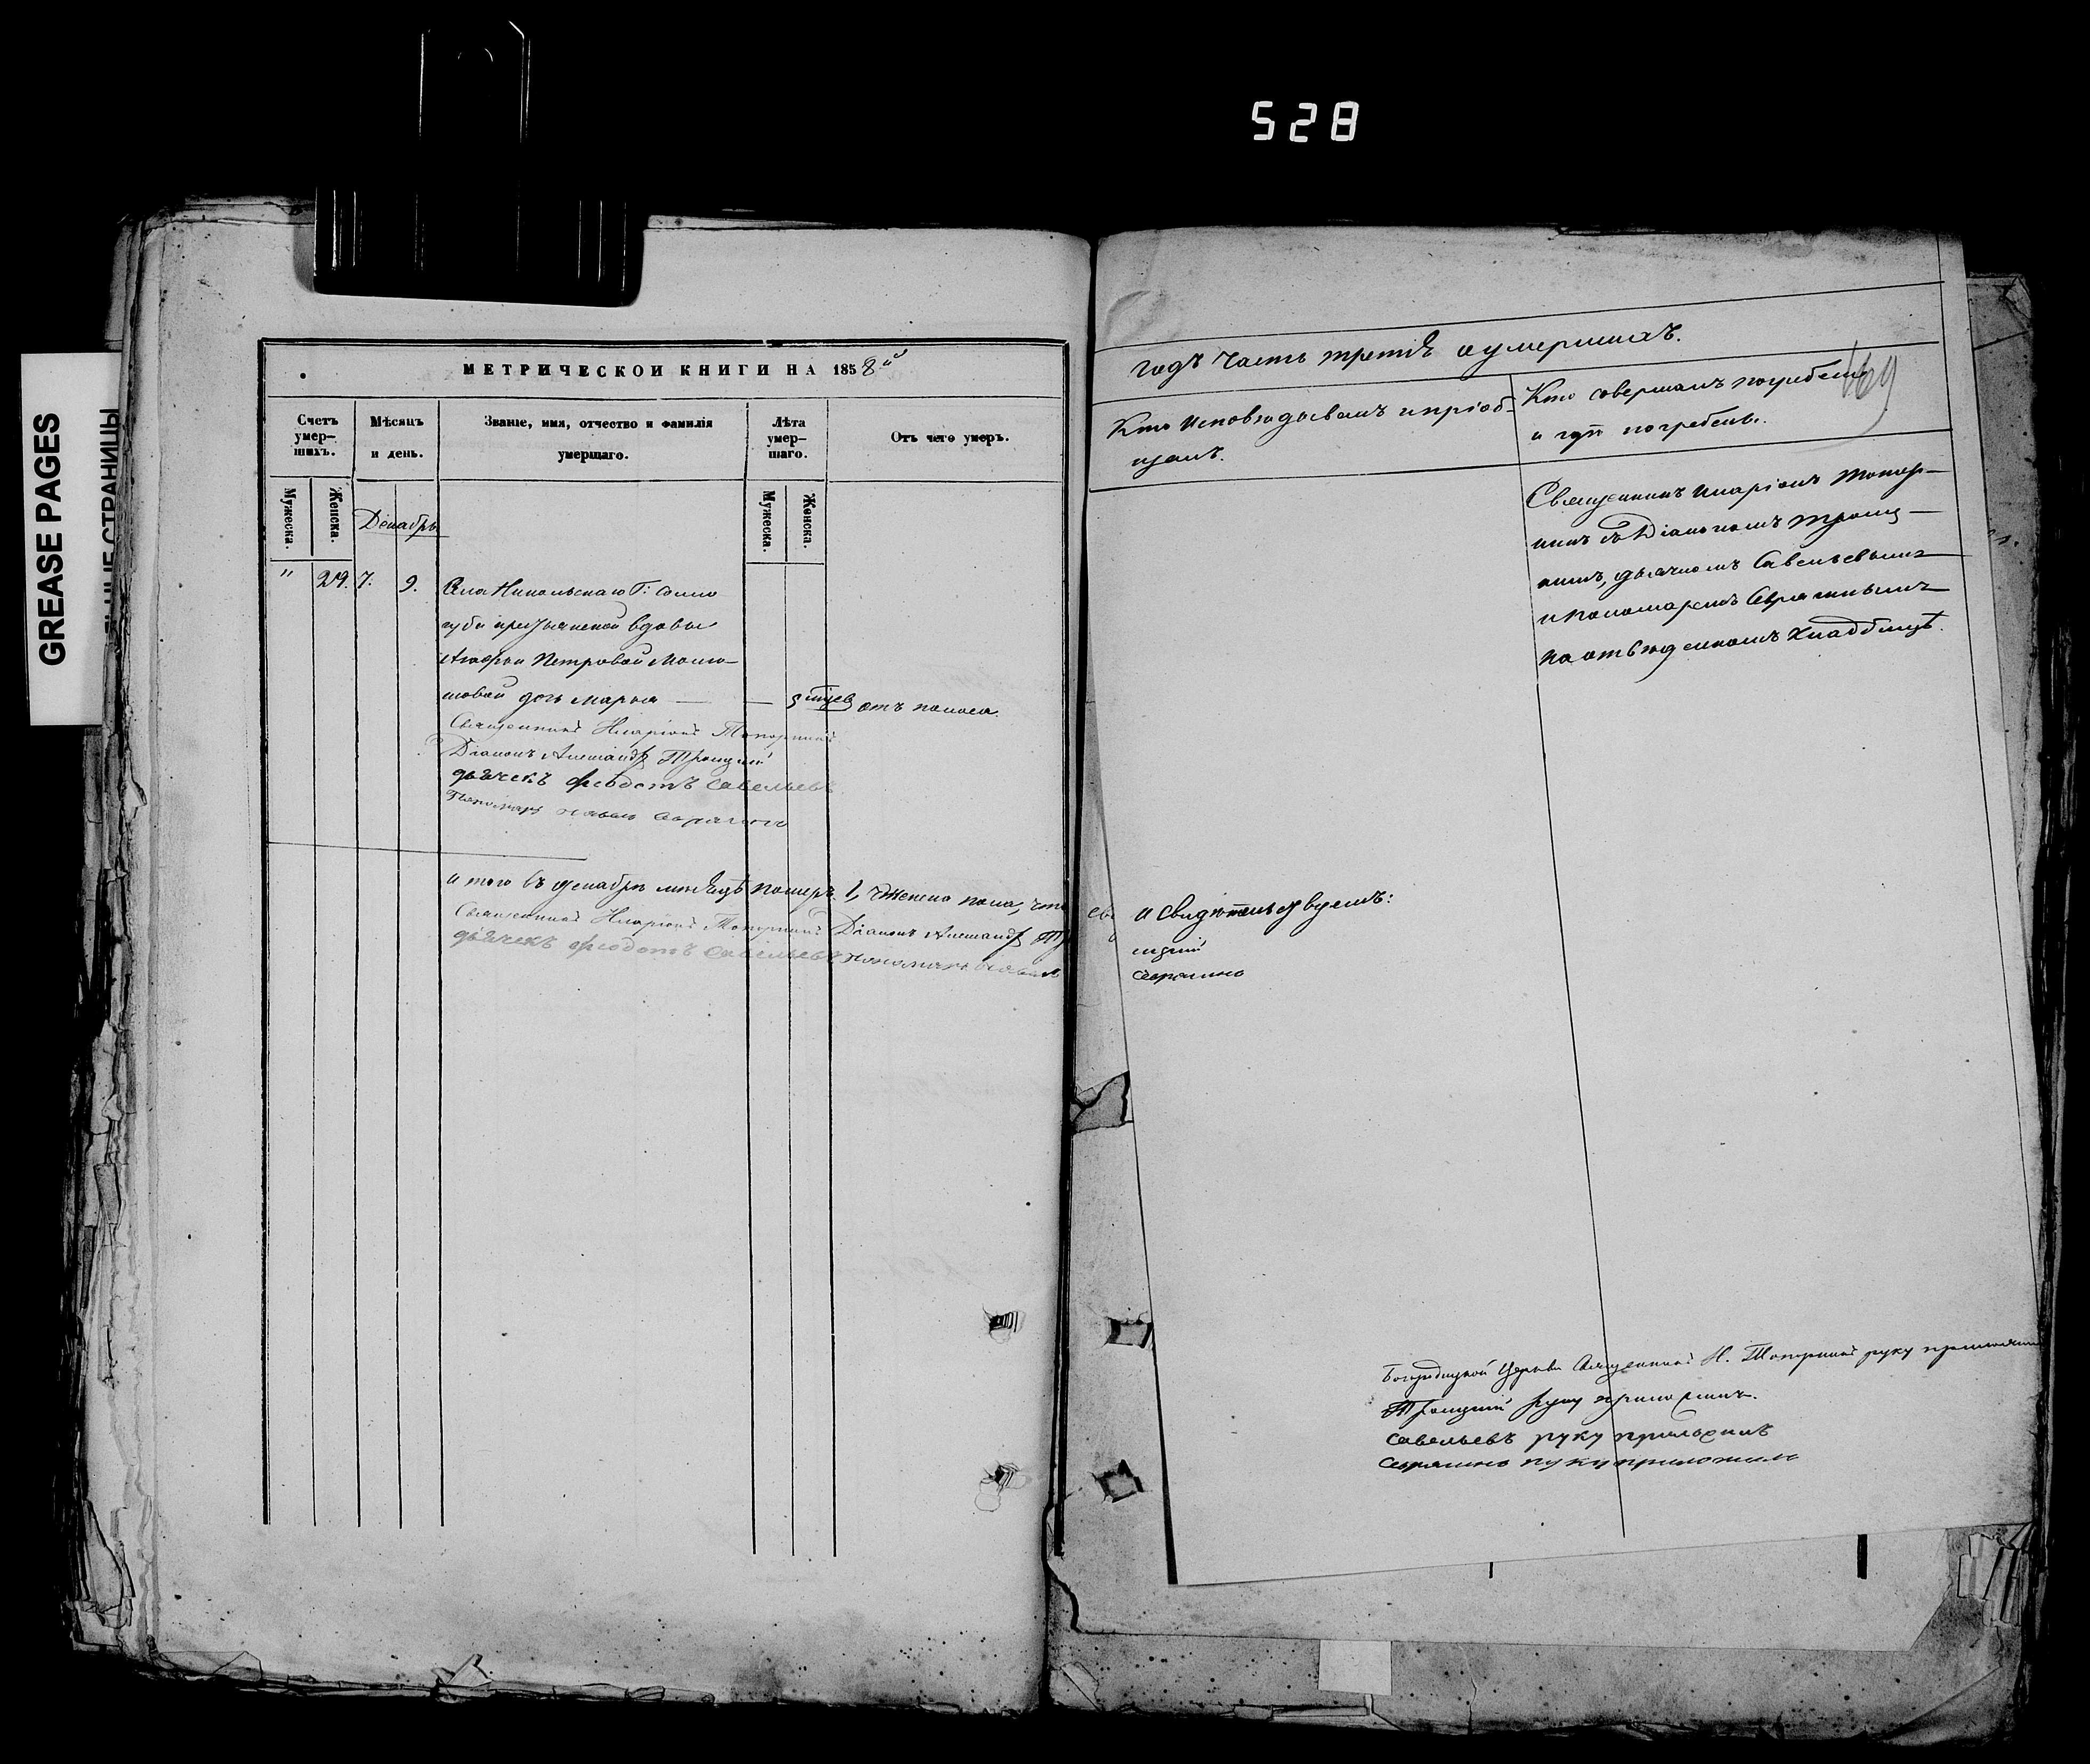 528
GREASE PAGES
МЕТРИЧЕСКОЙ КНИГИ НА 1858й
Счетъ умер-
шихъ.
Мѣсяцъ
и день.
Званіе, имя, отчество и фамилія
умершаго.
Лѣта
умер-
шаго.
Отъ чего умеръ.
Мужеска.
Женска.
Мужеска.
Женска.
Декабрь
" 29. 7. 9. Села Никольскаго Г:
крестьянской вдовы
Петровой
дочь Марья — — отъ поноса.
Священникъ Иларіонъ Топорнинъ
Діаконъ Александръ Троицкій
дьячекъ Феодотъ Савельевъ
Пономарь
Итого въ декабрѣ мѣсяцѣ померло 1, женска пола, что
Священникъ Иларіонъ Топорнинъ Діаконъ Александръ
дьячекъ Феодотъ Савельевъ пономарь
годъ часть третія о умершихъ.
169
Кто исповѣдывалъ и пріоб-
щалъ.
Кто совершалъ погребеніе
и гдѣ погребены.
Священникъ Иларіонъ Топор-
нинъ съ Діакономъ Троиц-
кимъ, дьячкомъ Савельевымъ
и пономаремъ
на отведенномъ кладбищѣ.
и свидѣтельствуемъ:
Богородицкой Церкви Священникъ И. Топорнинъ руку приложилъ
Троицкій руку приложилъ.
Савельевъ руку приложилъ
руку приложилъ